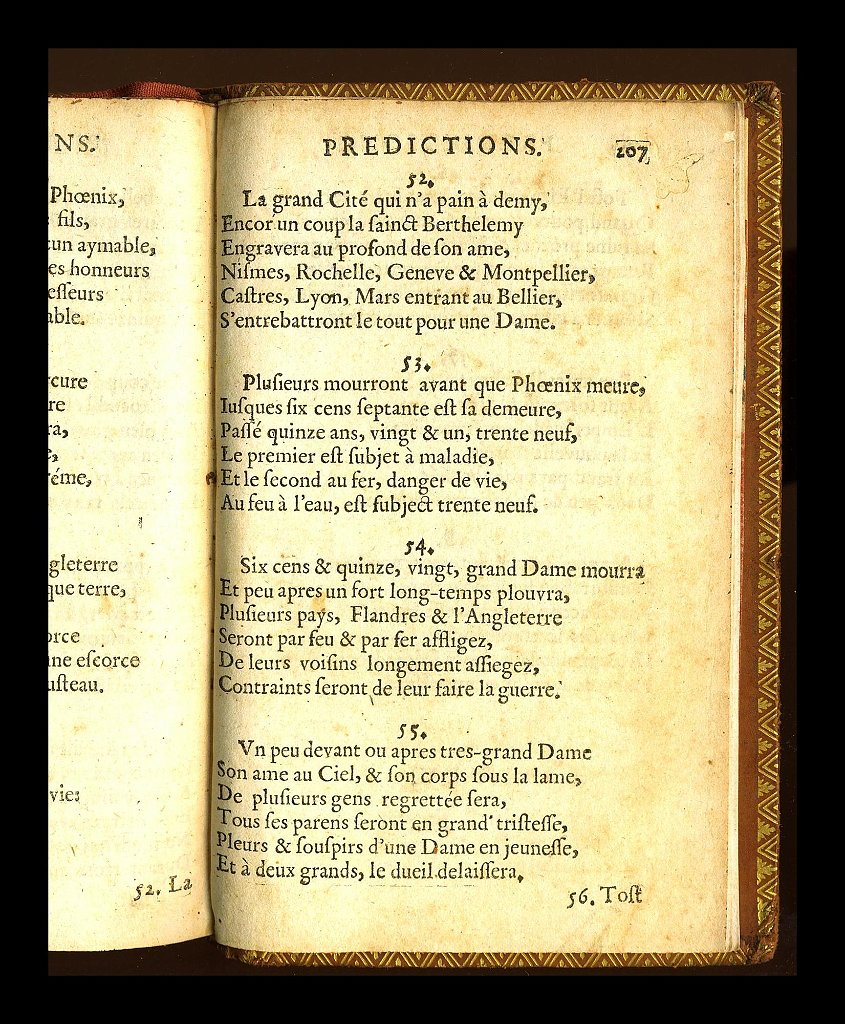 NS.
Phœnix,
fils,
cun aymable,
es honneurs
eſſeurs
able.
rcure
re
ra,
e,
réme,
gleterre
que terre,
orce
une eſcorce
uſteau.
vie:
52. La
PREDICTIONS. 207
52.
La grand Cité qui n'a pain à demy,
Encor un coup la ſainct Berthelemy
Engravera au profond de ſon ame,
Niſmes, Rochelle, Geneve & Montpellier,
Caſtres, Lyon, Mars entrant au Bellier,
S'entrebattront le tout pour une Dame.
53.
Pluſieurs mourront avant que Phœnix meure,
Iuſques ſix cens ſeptante eſt ſa demeure,
Paſſé quinze ans, vingt & un, trente neuf,
Le premier eſt ſubjet à maladie,
Et le ſecond au fer, danger de vie,
Au feu à l'eau, eſt ſubject trente neuf.
54.
Six cens & quinze, vingt, grand Dame mourra
Et peu apres un fort long-temps plouvra,
Pluſieurs pays, Flandres & l'Angleterre
Seront par feu & par fer affligez,
De leurs voiſins longement aſſiegez,
Contraints ſeront de leur faire la guerre.
55.
Vn peu devant ou apres tres-grand Dame
Son ame au Ciel, & ſon corps ſous la lame,
De pluſieurs gens regrettée ſera,
Tous ſes parens ſeront en grand' triſteſſe,
Pleurs & ſouſpirs d'une Dame en jeuneſſe,
Et à deux grands, le dueil delaiſſera.
56. Toſt